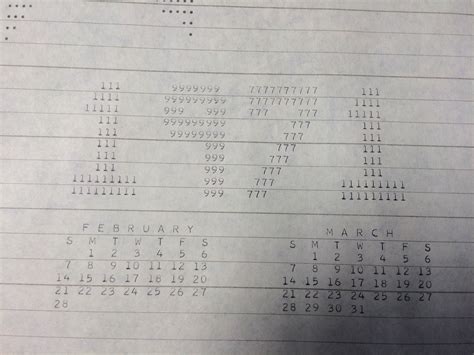 111 9999999 7777777777 111
1111 999999999 7777777777 1111
11111 999 999 777 777 11111
111 999999999 777 111
111 999999999 777 111
111 999 777 111
111 999 777 111
111 999 777 111
111111111 999 777 111111111
111111111 999 777 111111111
F E B R U A R Y
S M T W T F S
1 2 3 4 5 6
7 8 9 10 11 12 13
14 15 16 17 18 19 20
21 22 23 24 25 26 27
28
M A R C H
S M T W T F S
1 2 3 4 5 6
7 8 9 10 11 12 13
14 15 16 17 18 19 20
21 22 23 24 25 26 27
28 29 30 31